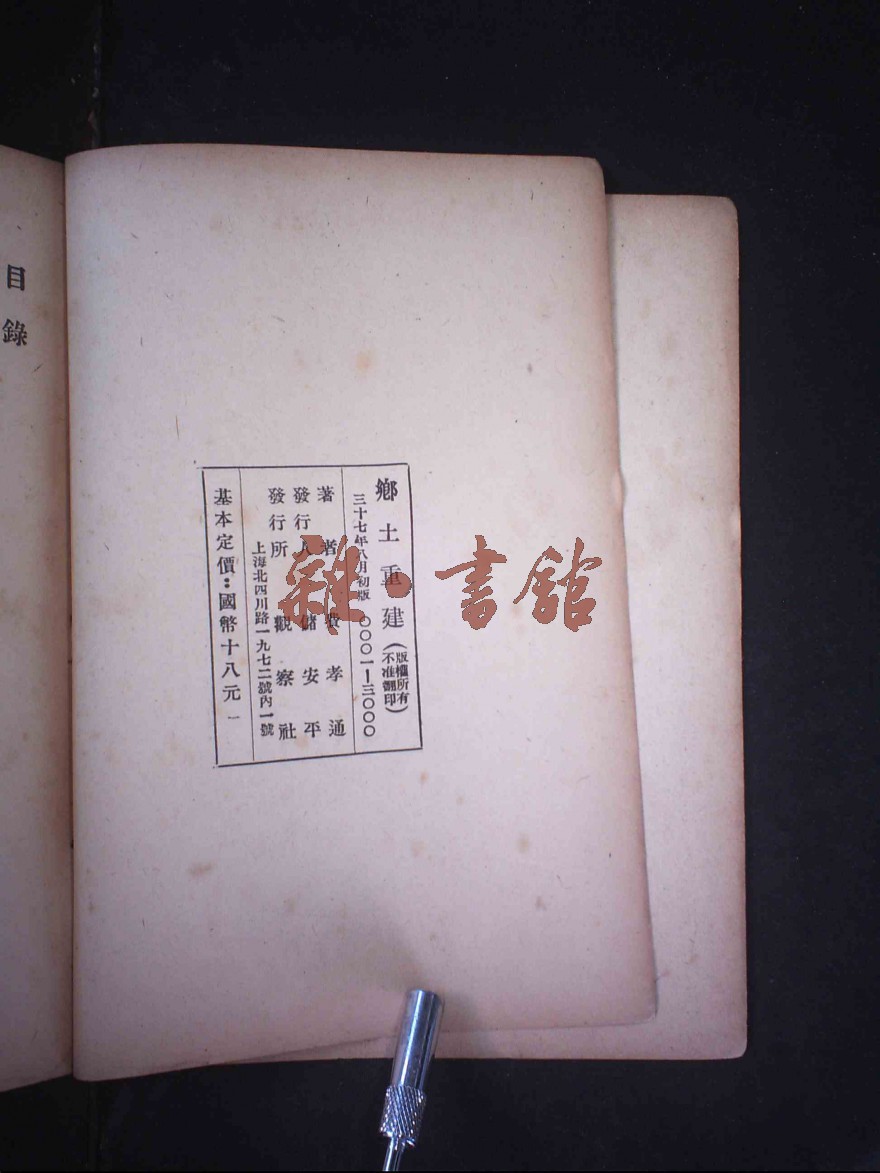 鄉土重建（版權所有 不准翻印）
三十七年八月初版 〇〇〇一—三〇〇〇
著者 費孝通
發行人 儲安平
發行所 觀察社
上海北四川路一九七二號內一號
基本定價：國幣十八元
目錄
雜·書館